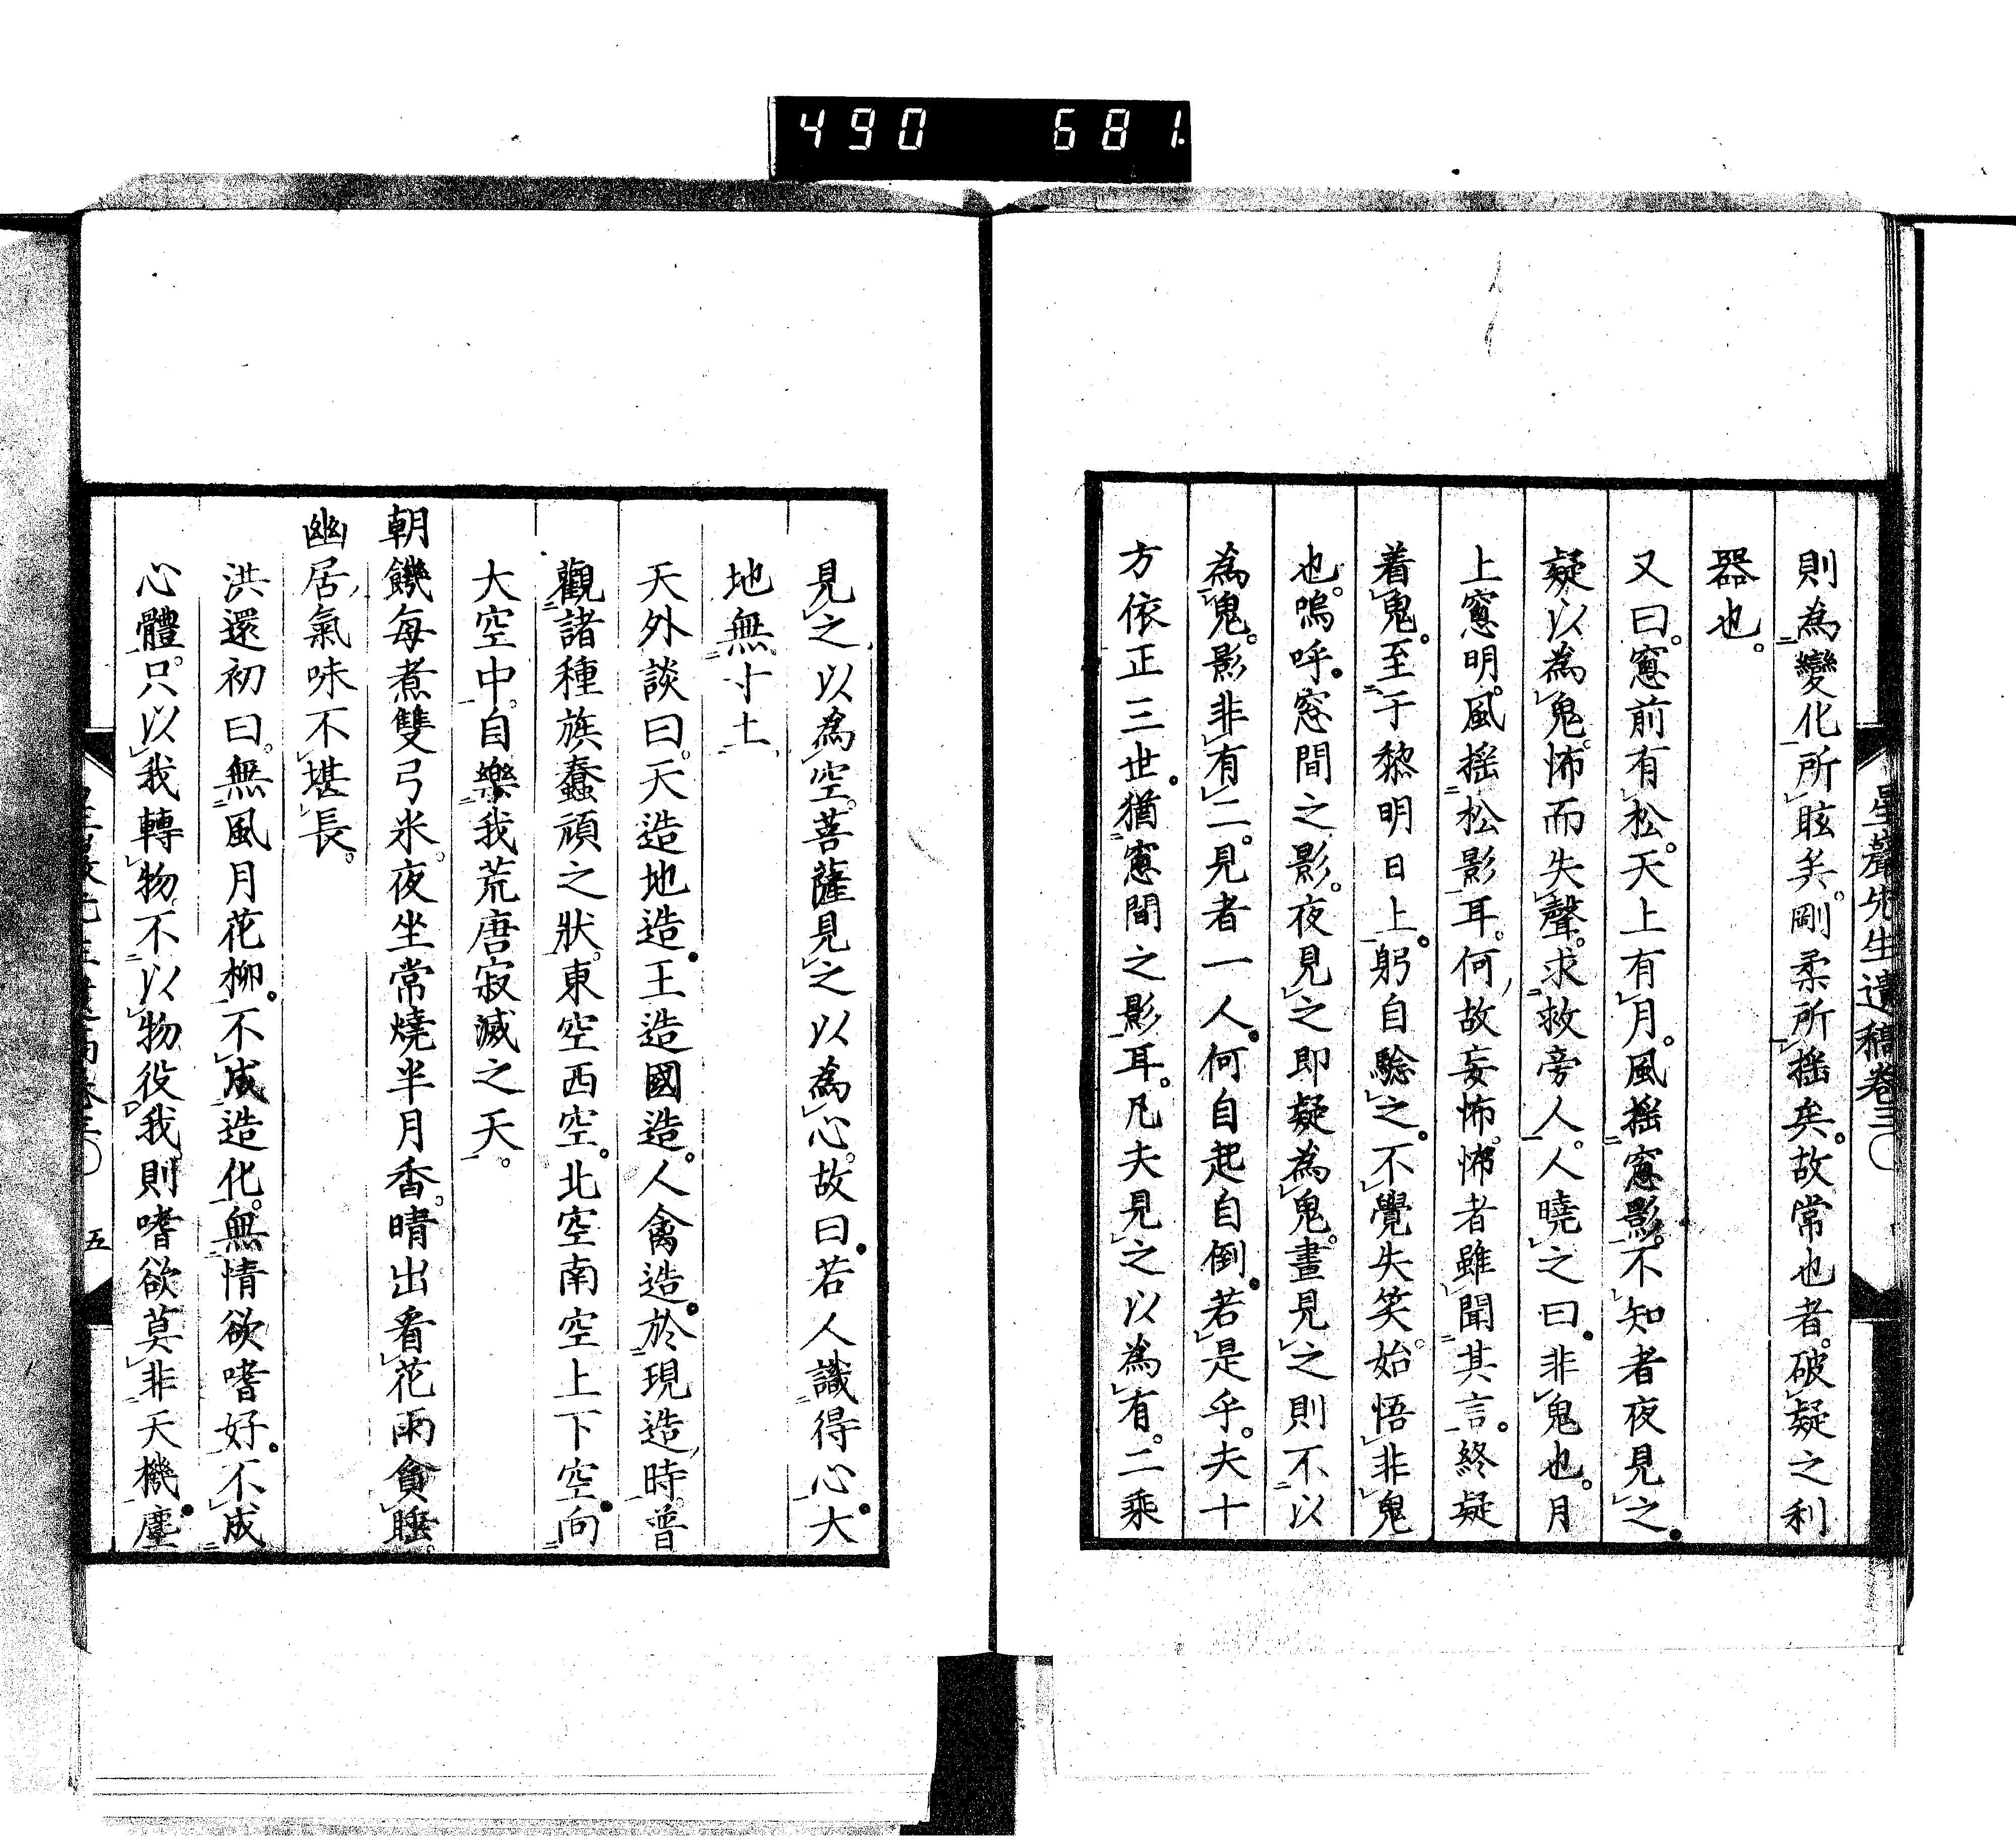 490 681
星聲先生遺稿卷三
則為變化所眩矣。剛柔所揺矣。故常也者。破疑之利
器也。
又曰。窓前有松。天上有月。風揺窓影。不知者夜見之。
疑以為鬼。怖而失聲。求救旁人。人曉之曰。非鬼也。月
上窓明。風揺松影耳。何故妄怖。怖者雖聞其言。終疑
着鬼。至于黎明日上。躬自驗之。不覺失笑。始悟非鬼
也。嗚呼。窓間之影。夜見之即疑為鬼。晝見之則不以
為鬼。影非有二。見者一人。何自起自倒。若是乎。夫十
方依正三世。猶窓間之影耳。凡夫見之以為有。二乘
見之以為空。菩薩見之以為心。故曰。若人識得心。大
地無寸土。
天外談曰。天造地造。王造國造。人禽造。於現造時。普
觀諸種族蠢頑之狀。東空西空。北空南空上下空。向
大空中。自樂我荒唐寂滅之天。
朝饑每煮雙弓米。夜坐常燒半月香。晴出看花雨貪睡。
幽居氣味不堪長。
洪還初曰。無風月花柳。不成造化。無情欲嗜好。不成
心體。只以我轉物。不以物役我。則嗜欲莫非天機。塵
五